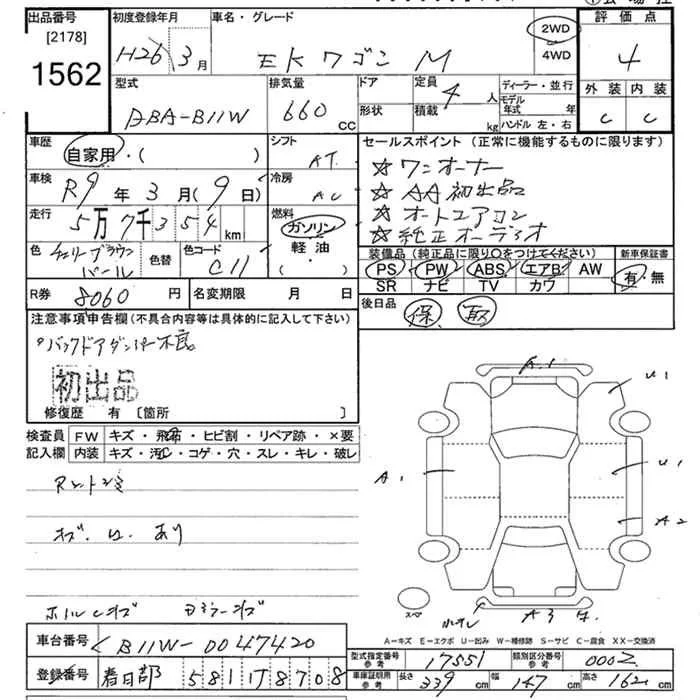 出品番号 初度登録年月 車名・グレード 評価点
[2178]
1562
H26年3月 EKワゴン M 2WD 4WD 4
型式 排気量 ドア 定員 4人 ディーラー・並行 外装 内装
DBA-B11W 660cc 形状 積載 kg モデル年式 年 C C
ハンドル 左・右
車歴 自家用・( ) シフト AT セールスポイント (正常に機能するものに限ります)
車検 R9年3月(9日) 冷房 AC ☆ワンオーナー
☆AA初出品
走行 5万7千354km 燃料 ガソリン 軽油 ・( ) ☆オートエアコン
☆純正オーディオ
色 チェリーブラウンパール 色替 色コード C11
装備品 (純正品に限り○をつけてください) 新車保証書
PS PW ABS エアB AW 有・無
SR ナビ TV カワ
R券 8060円 名変期限 月 日
後日品 保 取
注意事項申告欄(不具合内容等は具体的に記入して下さい)
バックドアダンパー不良
初出品
修復歴 有 [箇所 ]
検査員記入欄 FW キズ・飛石・ヒビ割・リペア跡・×要
内装 キズ・汚レ・コゲ・穴・スレ・キレ・破レ
キズ・凹・あり
A1
U1
A1
U1
A2
A-キズ E-エクボ U-凹み W-補修跡 S-サビ C-腐食 XX-交換済
車台番号 B11W-0047420
型式指定番号 参考 17551 類別区分番号 参考 0002
登録番号 春日部 581 け 8708
車庫証明用 参考 長さ 339cm 幅 147cm 高さ 162cm